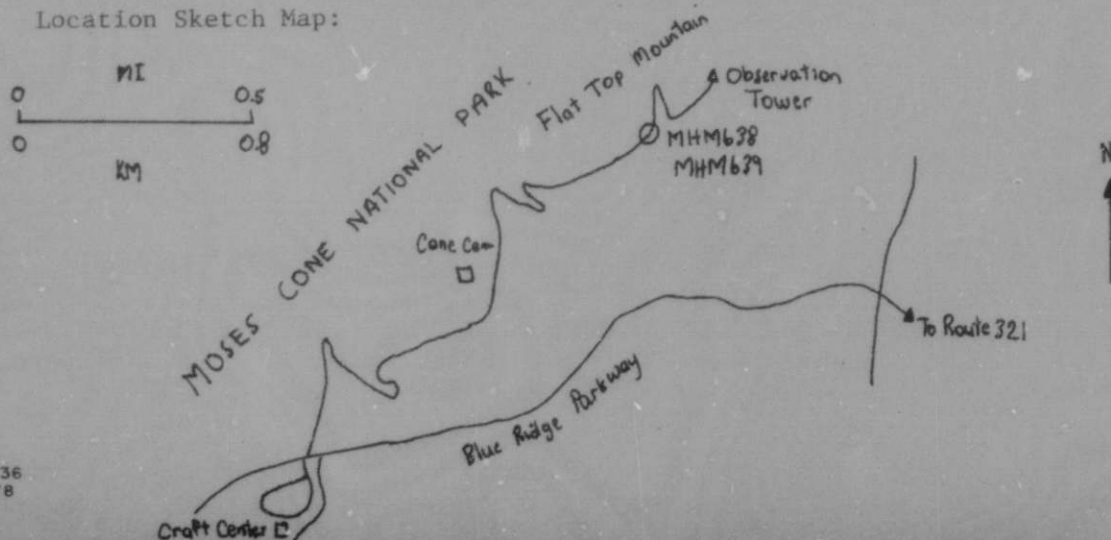 Location Sketch Map:
MI
0 0.5
0 0.8
KM
MOSES CONE NATIONAL PARK
Flat Top Mountain
Observation
Tower
MHM638
MHM639
Cone Ce
N
To Route 321
Blue Ridge Parkway
36
8
Craft Center